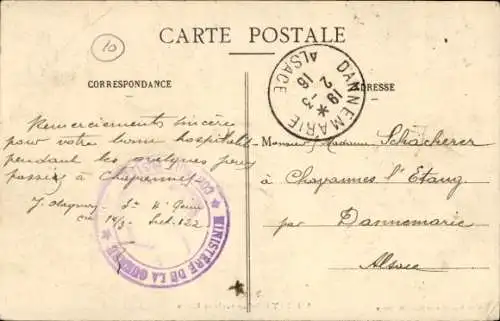 10
CARTE POSTALE
CORRESPONDANCE
ADRESSE
DANNEMARIE
ALSACE
19 * 3
2
16
Remerciements sincères
pour votre bonne hospitalité
pendant les quelques jours
passés à Chavannes
Sect. 122
MINISTERE DE LA GUERRE
Monsieur Madame Schächerer
à Chavannes l'Etang
par Dannemarie
Alsace